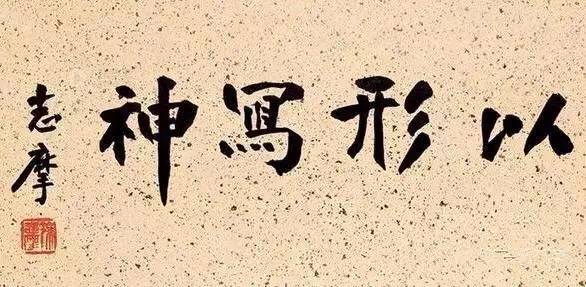 以形寫神
志摩